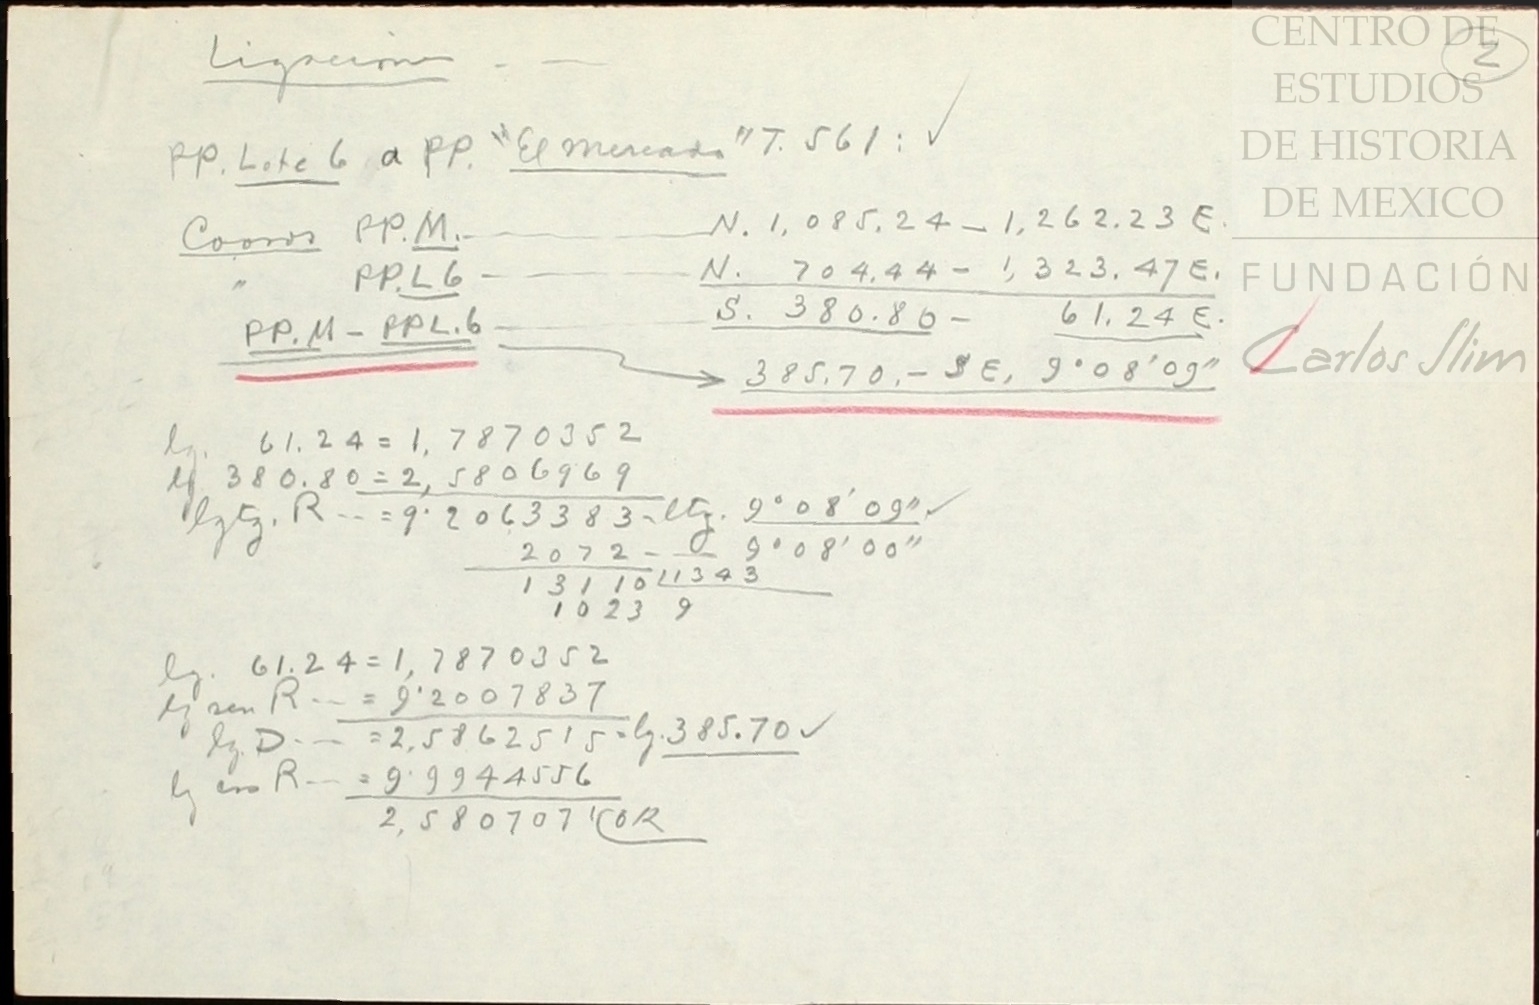 Ligación - —
2
PP. Lote 6 a PP. "El Mercado" T. 561: ✓
Coords PP.M. - N. 1,085.24 - 1,262.23 E.
" PP.L6 - N. 704.44 - 1,323.47 E.
S. 380.80 - 61.24 E.
PP.M - PPL.6
385.70.- SE, 9°08'09"
lg. 61.24 = 1,7870352
lg 380.80 = 2,5806969
lgtg. R --- = 9.2063383 - ltg. 9°08'09" ✓
2072 - — 9°08'00"
13110 11343
1023 9
lg. 61.24 = 1,7870352
lg sen R --- = 9.2007837
lg. D --- = 2,5862515 = lg. 385.70 ✓
lg cos R --- = 9.9944556
2,5807071 OK
CENTRO DE
ESTUDIOS
DE HISTORIA
DE MEXICO
FUNDACIÓN
Carlos Slim